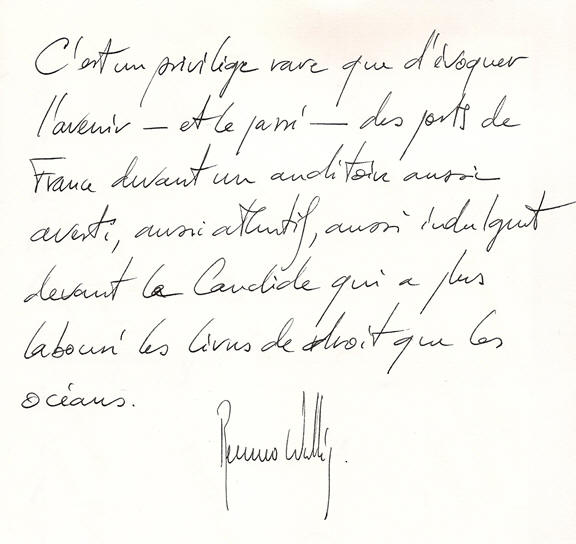 C'est un privilège rare que d'évoquer
l'avenir — et le passé — des ports de
France devant un auditoire aussi
averti, aussi attentif, aussi indulgent
devant le Candide qui a plus
labouré les livres de droit que les
océans.